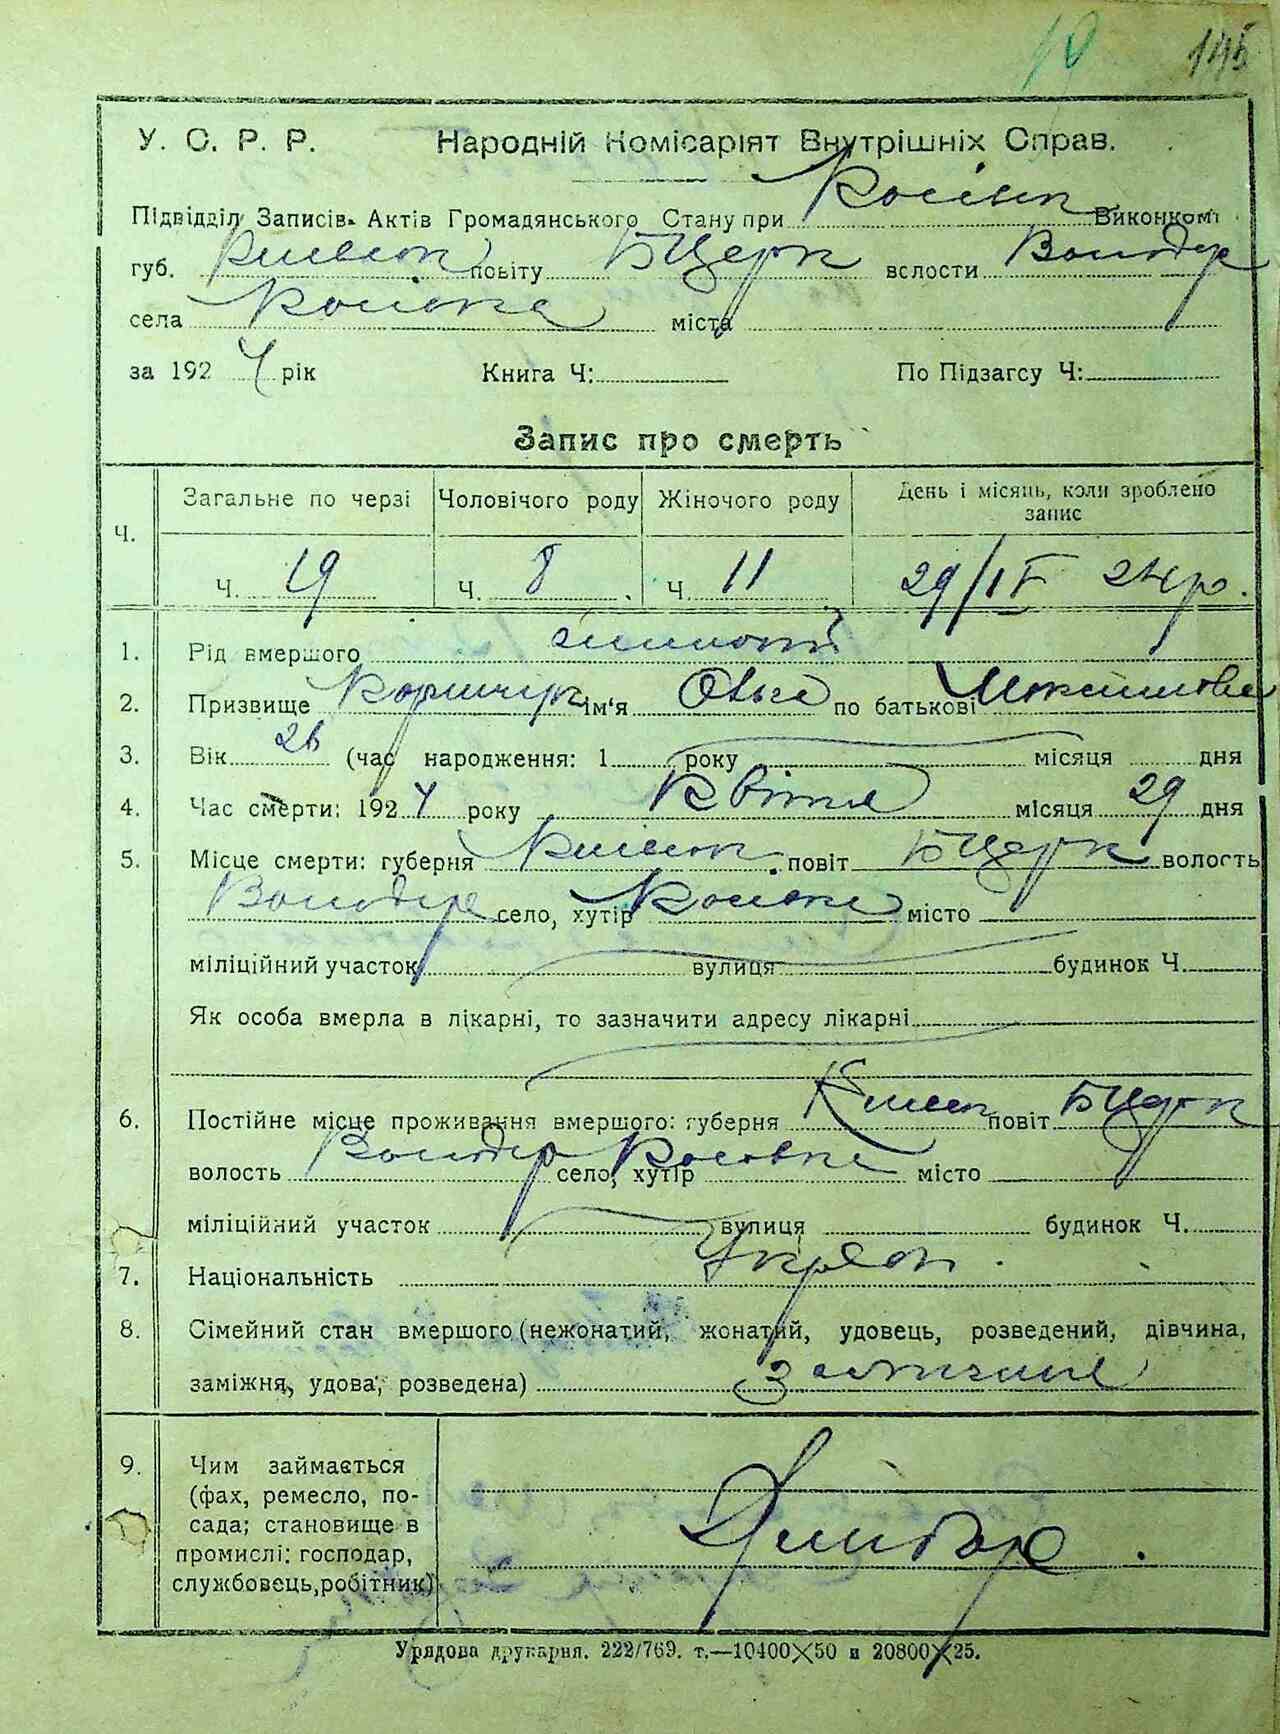 19 145
У. С. Р. Р. Народній Комісаріят Внутрішніх Справ.
Підвідділ Записів Актів Громадянського Стану при Косівск Виконкомі
губ. Київськ повіту БЦерк вслости Володар
села Косівка міста
за 1924 рік Книга Ч: По Підзагсу Ч:
Запис про смерть
Ч. Загальне по черзі Чоловічого роду Жіночого роду День і місяць, коли зроблено запис
Ч. 19 Ч. 8 Ч. 11 29/IV 24 р.
1. Рід вмершого жіночий
2. Призвище ім'я по батькові
3. Вік (час народження: 1 року місяця дня
4. Час смерти: 1924 року Квітня місяця 29 дня
5. Місце смерти: губерня Київськ повіт БЦерк волость
Володар село, хутір Косівка місто
міліційний участок вулиця будинок Ч.
Як особа вмерла в лікарні, то зазначити адресу лікарні
6. Постійне місце проживання вмершого: губерня Київськ повіт БЦерк
волость Володар село, хутір Косівка місто
міліційний участок вулиця будинок Ч.
7. Національність
8. Сімейний стан вмершого (нежонатий, жонатий, удовець, розведений, дівчина,
заміжня, удова, розведена)
9. Чим займається
(фах, ремесло, по-
сада; становище в
промислі: господар,
службовець, робітник) Хлібороб.
Урядова друкарня. 222/769. т.—10400X50 и 20800X25.